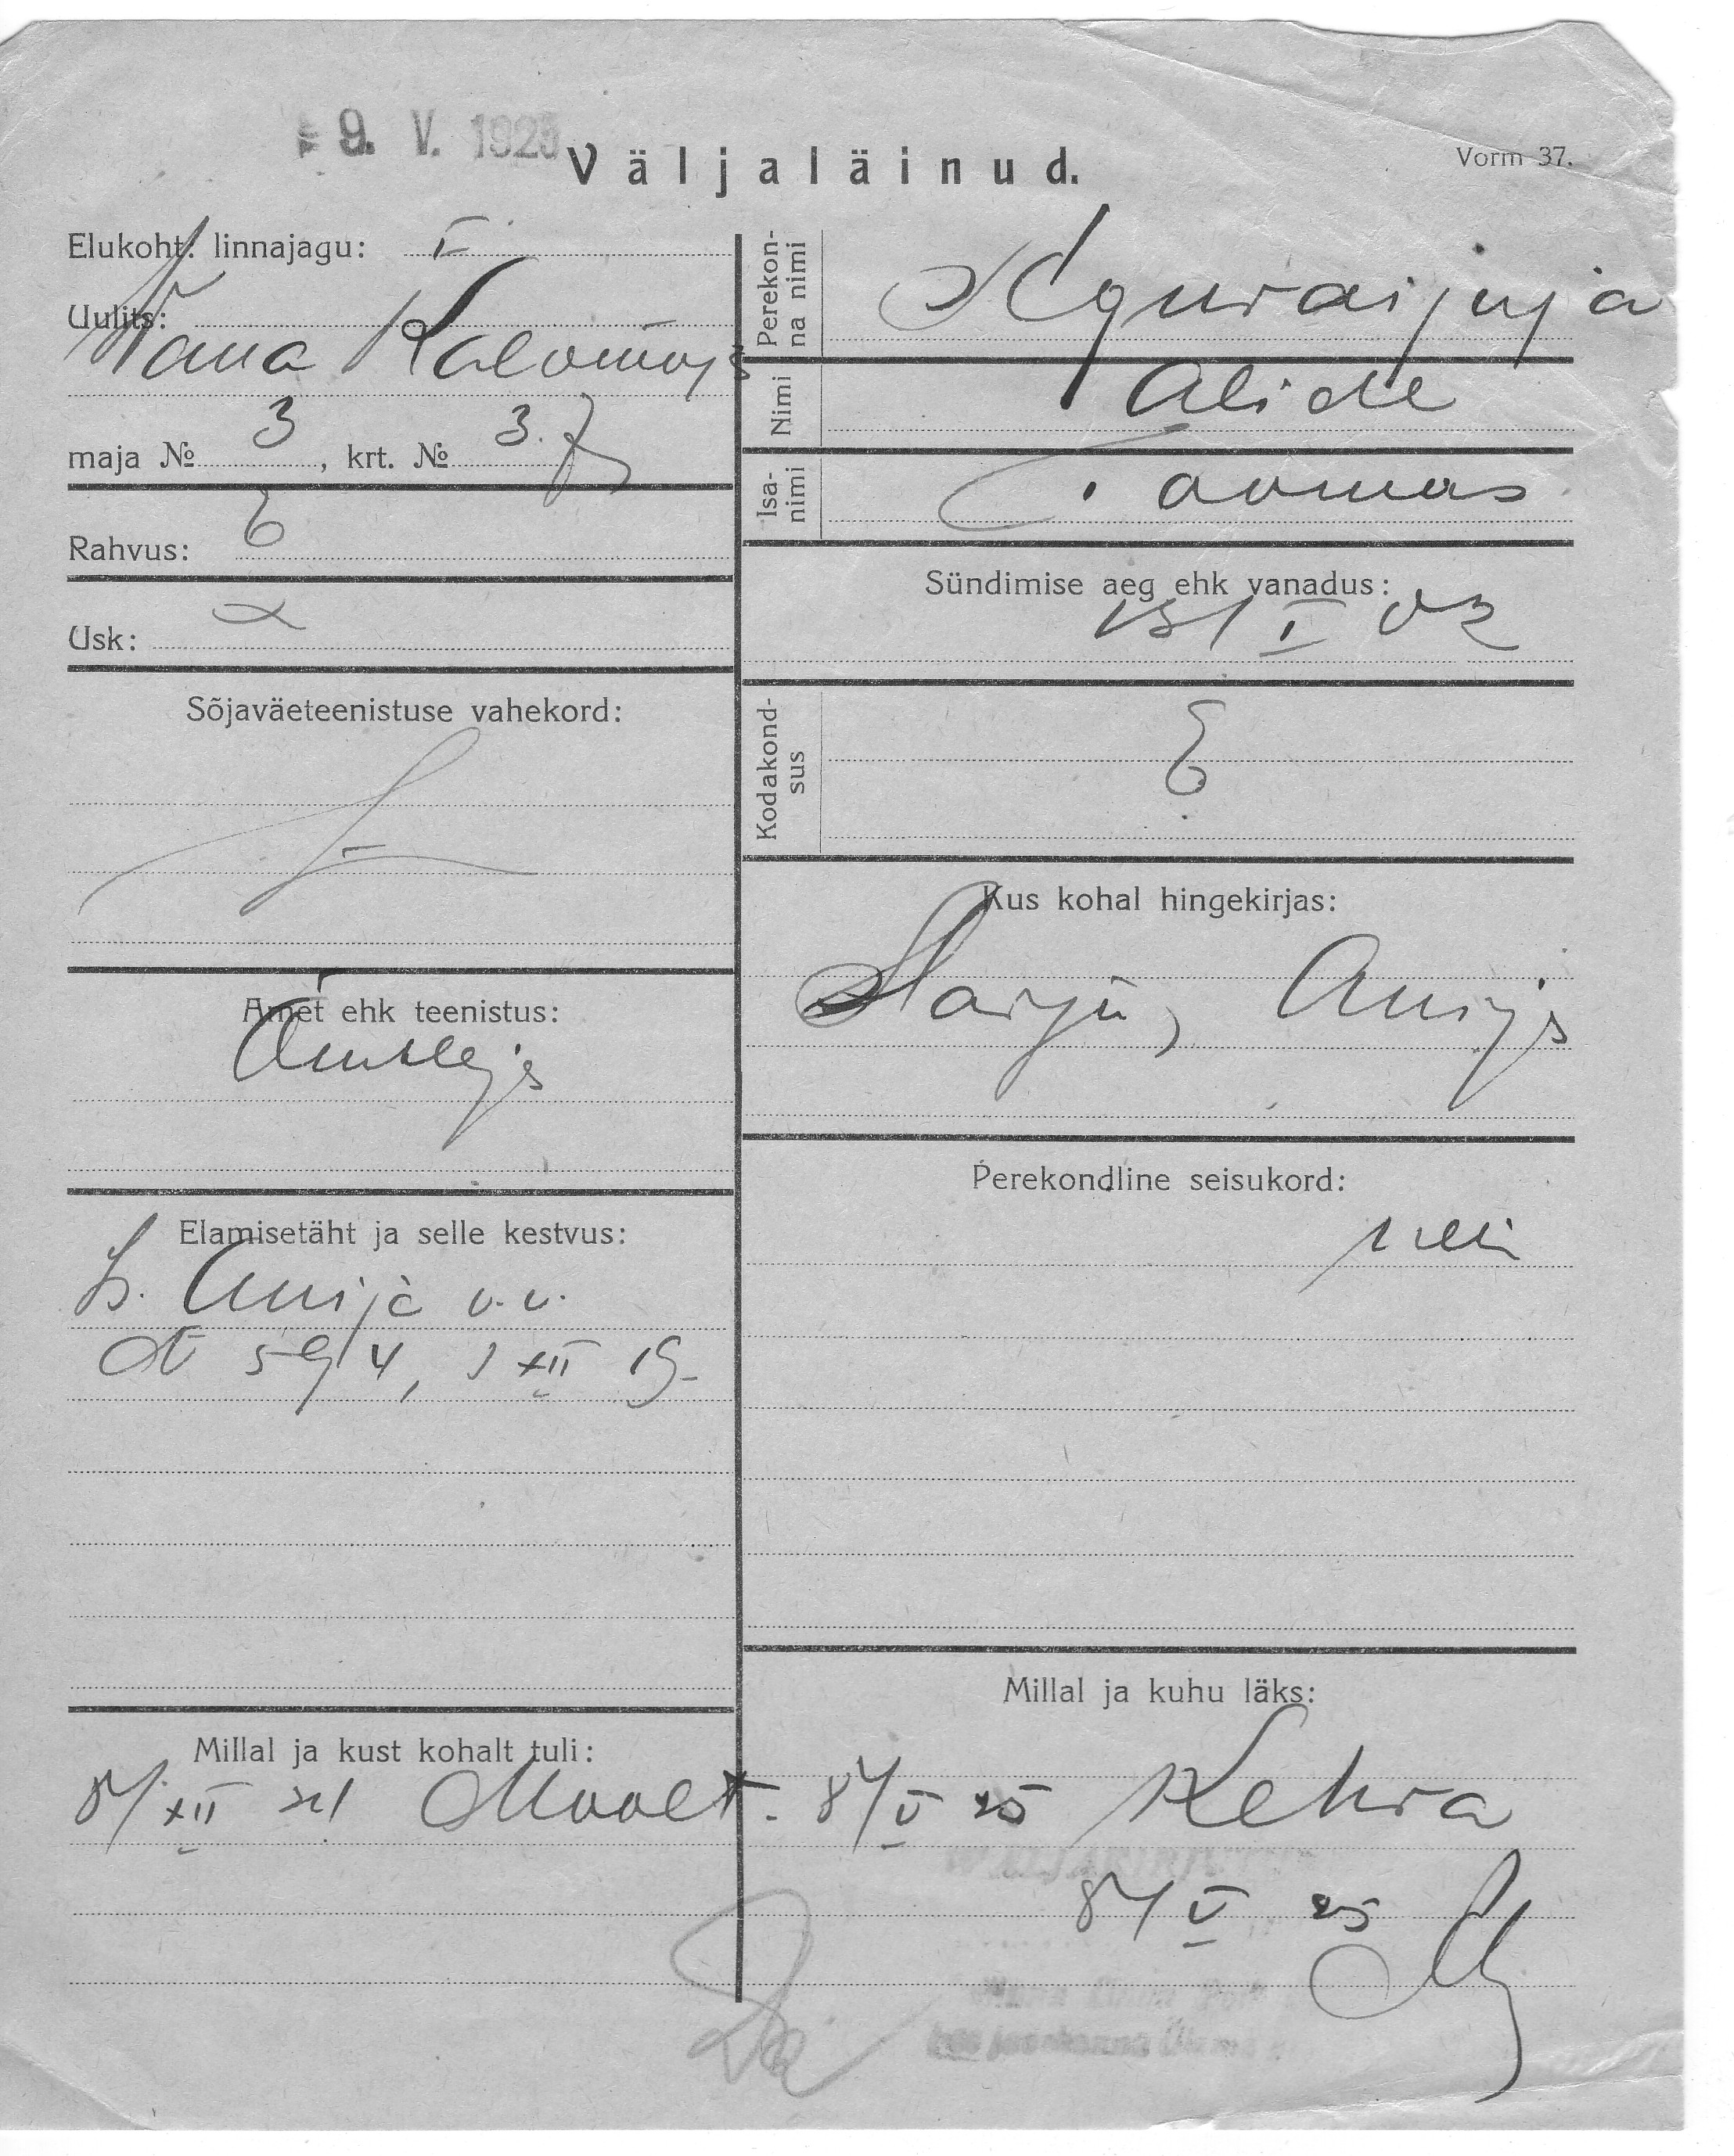 9. V. 1925
Väljaläinud.
Vorm 37.
Elukoht: linnajagu: I
Uulits:
Wana Kalamaja
maja № 3, krt. № 3.
Rahvus: E
Usk: L
Sõjaväeteenistuse vahekord:
Amet ehk teenistus:
Õmbleja
Elamisetäht ja selle kestvus:
Anija v.v.
XII 19
Millal ja kust kohalt tuli:
8/XII 21
Perekonna nimi
Nimi Alide
Isanimi Toomas
Sündimise aeg ehk vanadus:
I 02
Kodakondsus E
Kus kohal hingekirjas:
Harju, Anija
Perekondline seisukord:
nei
Millal ja kuhu läks:
8/V 25 Kehra
8/V 25